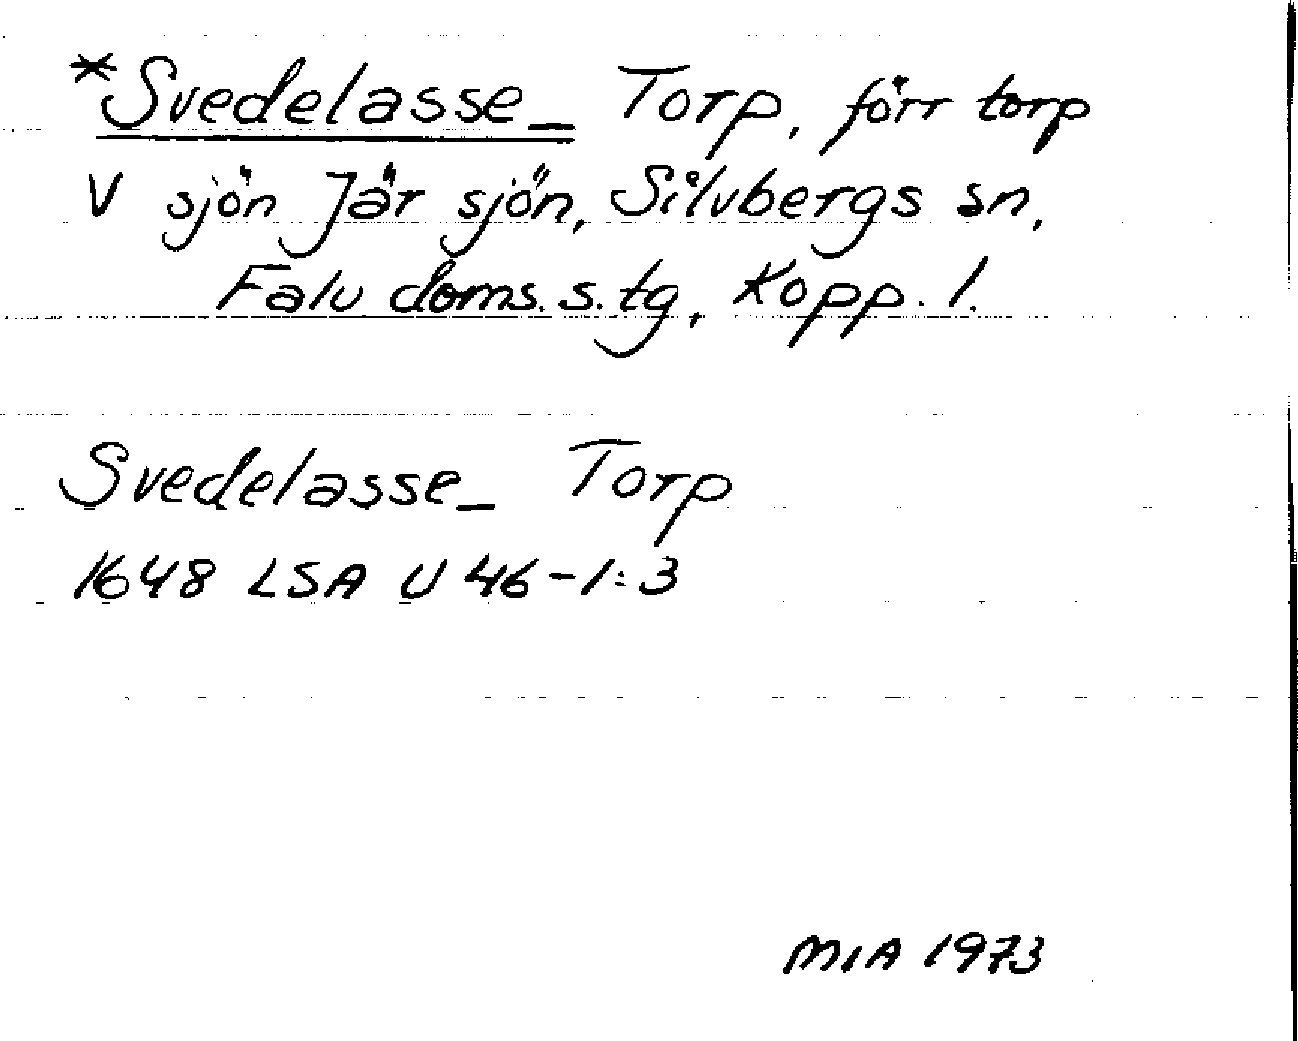 *Svedelasse_ Torp, förr torp
V sjön Jär sjön, Silvbergs sn,
Falu doms. s. tg, Kopp. l.
Svedelasse_ Torp
1648 LSA U 46-1:3
MIA 1973